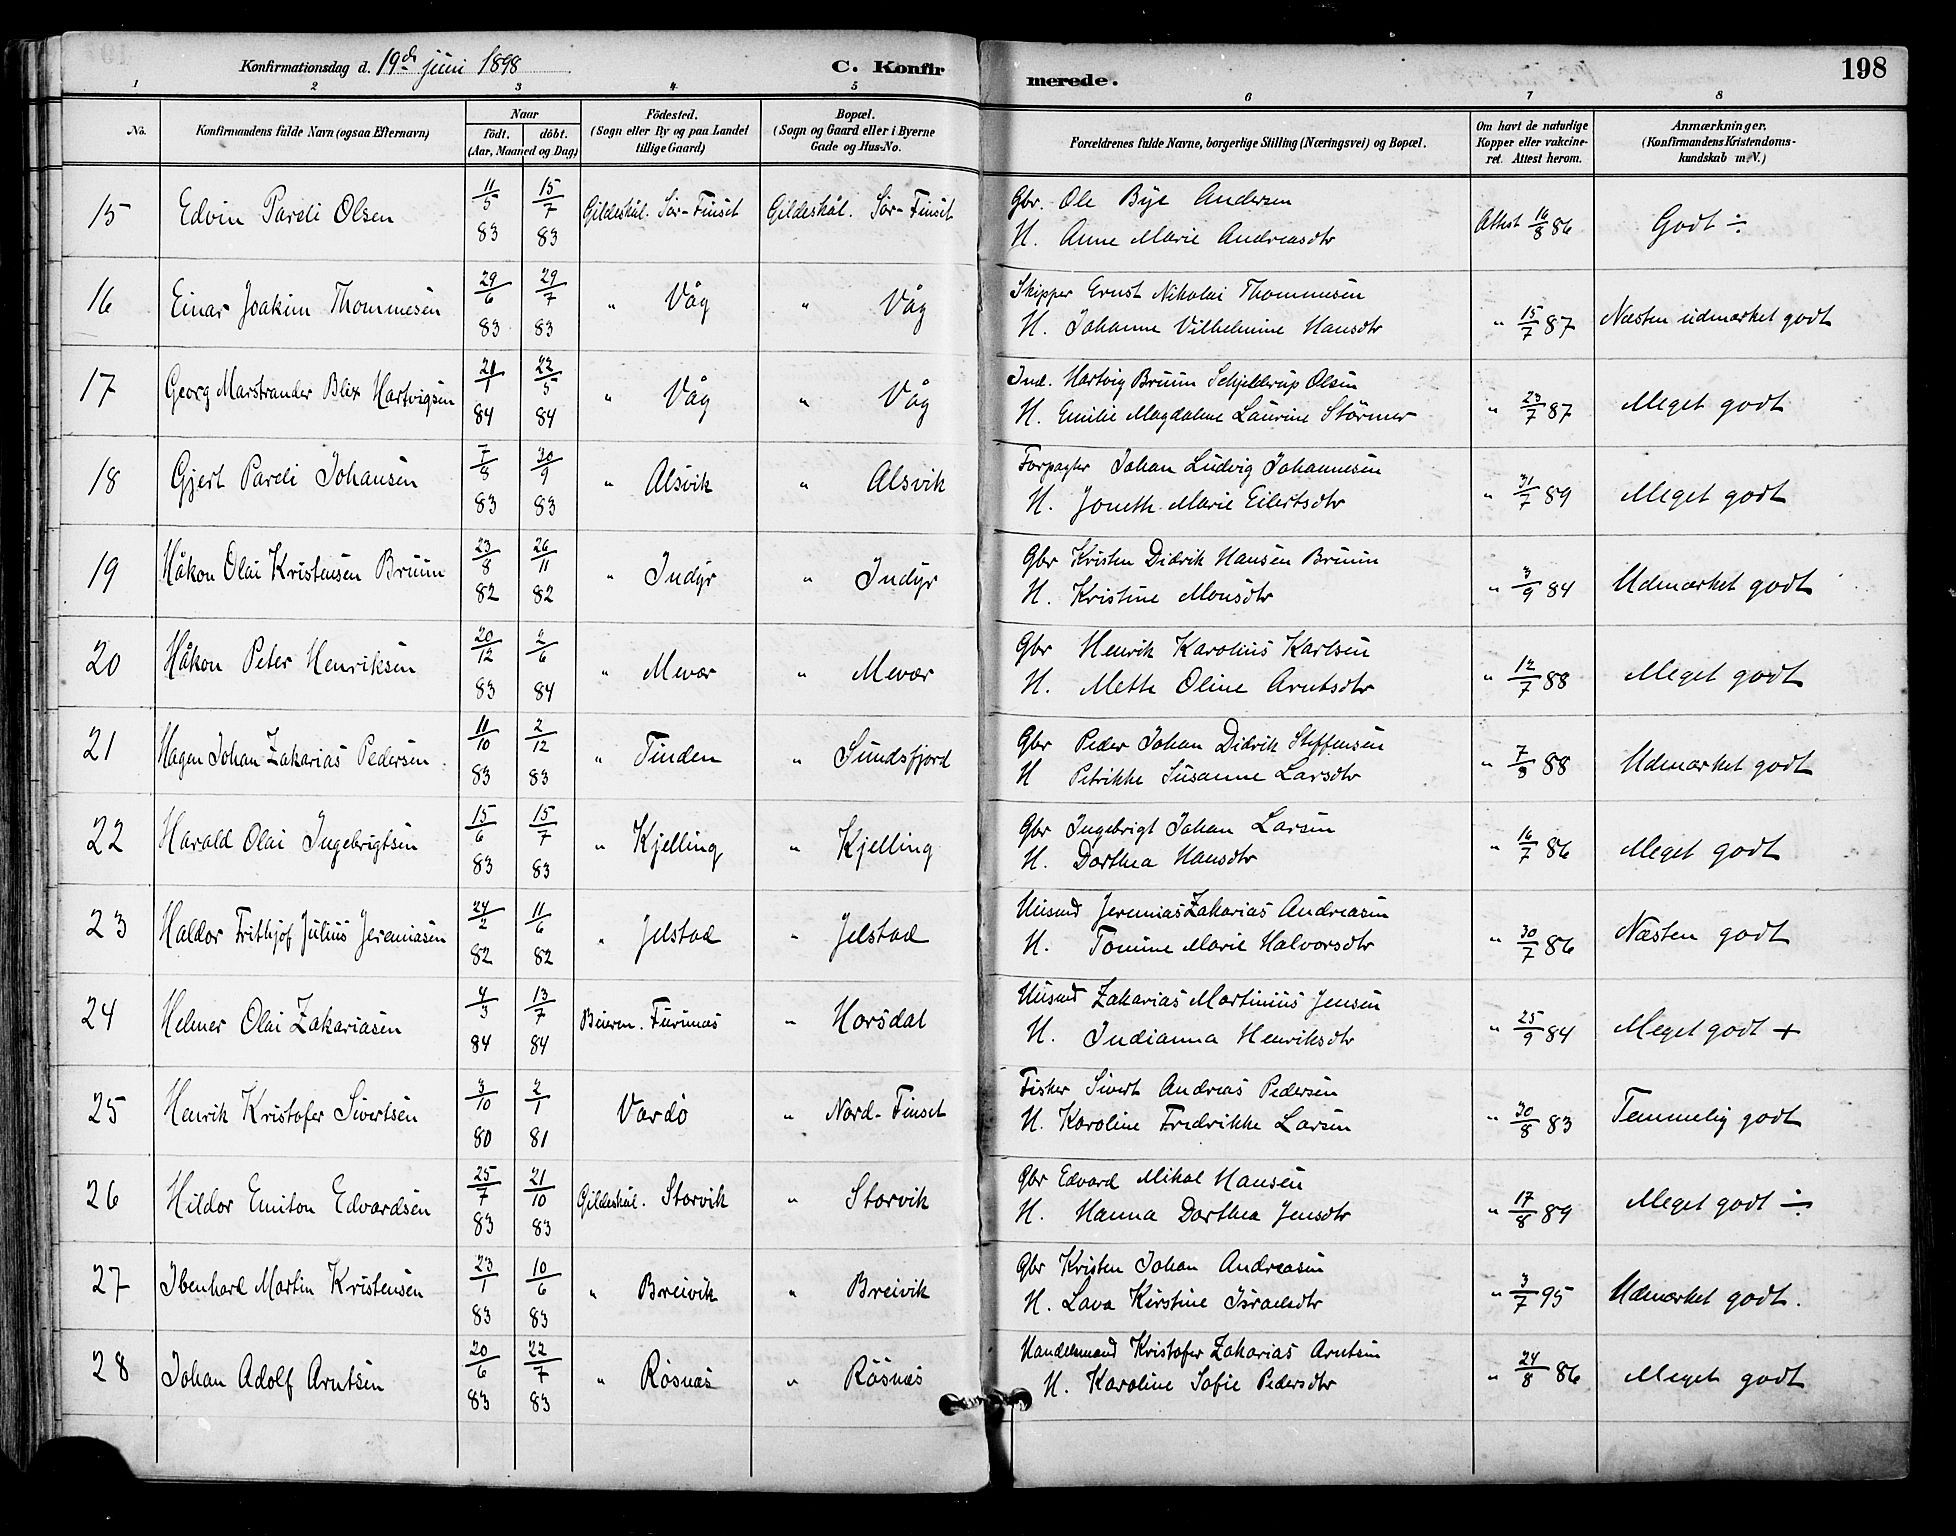 Konfirmationsdag d. 19de juni 1898 C. Konfirmerede. 198
1 2 3 4 5 6 7 8
No. Konfirmandens fulde Navn (ogsaa Efternavn) Naar födt. döbt. (Aar, Maaned og Dag) Födested. (Sogn eller By og paa Landet tillige Gaard) Bopæl. (Sogn og Gaard eller i Byerne Gade og Hus-No. Forældrenes fulde Navne, borgerlige Stilling (Næringsvei) og Bopæl. Om havt de naturlige Kopper eller vakcineret. Attest herom. Anmærkninger. (Konfirmandens Kristendomskundskab m.V.)
15 Edvin Pareli Olsen 11/5 83 15/7 83 Gildeskål. Sör-Finset Gildeskål. Sör-Finset Gbr. Ole Bye Andersen
H. Anne Marie Andreasdtr Attest 16/8 86 Godt ÷
16 Einar Joakim Thommesen 29/6 83 29/7 83 " Våg " Våg Skipper Ernst Nikolai Thommesen
H. Johanne Vilhelmine Hansdtr " 15/7 87 Næsten udmærket godt
17 Georg Marstrander Blix Hartvigsen 21/1 84 22/5 84 " Våg " Våg Ind. Hartvig Bruun Schjeldrup Olsen
H. Emilie Magdalene Laurine Störmer " 23/7 87 Meget godt
18 Gjert Pareli Johansen 7/8 83 30/9 83 " Alsvik " Alsvik Forpagter Johan Ludvig Johannesen
H. Joneth Marie Eilertsdtr " 31/7 89 Meget godt
19 Håkon Olai Kristensen Bruun 23/8 82 26/11 82 " Indyr " Indyr Gbr Kristen Didrik Hansen Bruun
H. Kristine Monsdtr " 3/9 84 Udmærket godt
20 Håkon Peter Henriksen 20/12 83 2/6 84 " Mevær " Mevær Gbr Henrik Karolius Karlsen
H. Meth Oline Arntsdtr " 12/7 88 Meget godt
21 Hagen Johan Zakarias Pedersen 11/10 83 2/12 83 " Tinden " Sundsfjord Gbr Peder Johan Didrik Steffensen
H Petrikke Susanne Larsdtr " 7/8 88 Udmærket godt
22 Harald Olai Ingebrigtsen 15/6 83 15/7 83 " Kjelling " Kjelling Gbr Ingebrigt Johan Larsen
H. Dorthea Hansdtr " 16/7 86 Meget godt
23 Haldor Frithjof Julius Jeremiasen 24/2 82 11/6 82 " Jelstad " Jelstad Husmd Jeremias Zakarias Andreasen
H. Tomine Marie Halvorsdtr " 30/7 86 Næsten godt
24 Helmer Olai Zakariasen 4/3 84 13/7 84 Beiern. Furunæs " Horsdal Husmd Zakarias Martinius Jensen
H. Indianna Henriksdtr " 25/9 84 Meget godt +
25 Henrik Kristofer Sivertsen 3/10 80 2/1 81 Vardö " Nord-Finset Fisker Sivert Andreas Pedersen
H. Karoline Fredrikke Larsen " 30/8 83 Temmelig godt
26 Hildor Emiton Edvardsen 25/7 83 21/10 83 Gildeskål. Storvik " Storvik Gbr Edvard Mikal Hansen
H. Hanna Dorthea Jensdtr " 17/8 89 Meget godt ÷
27 Ibenhard Martin Kristensen 23/1 83 10/6 83 " Breivik " Breivik Gbr Kristen Johan Andreasen
H. Lava Kirstine Israelsdtr " 3/7 95 Udmærket godt.
28 Johan Adolf Arntsen 20/6 83 22/7 83 " Rösnæs " Rösnæs Handelsmand Kristofer Zakarias Arntsen
H. Karoline Sofie Pedersdtr " 24/8 86 Meget godt